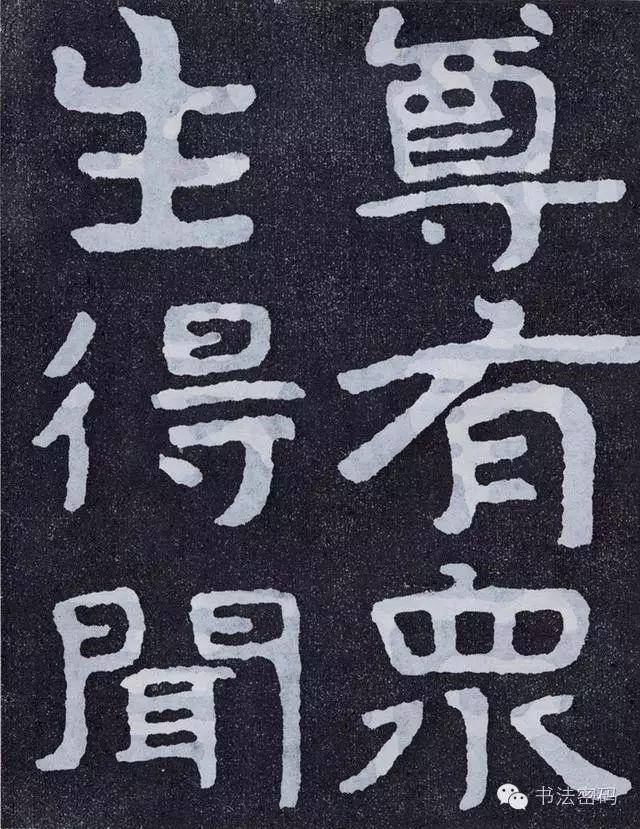 尊有眾
生得聞
书法密码